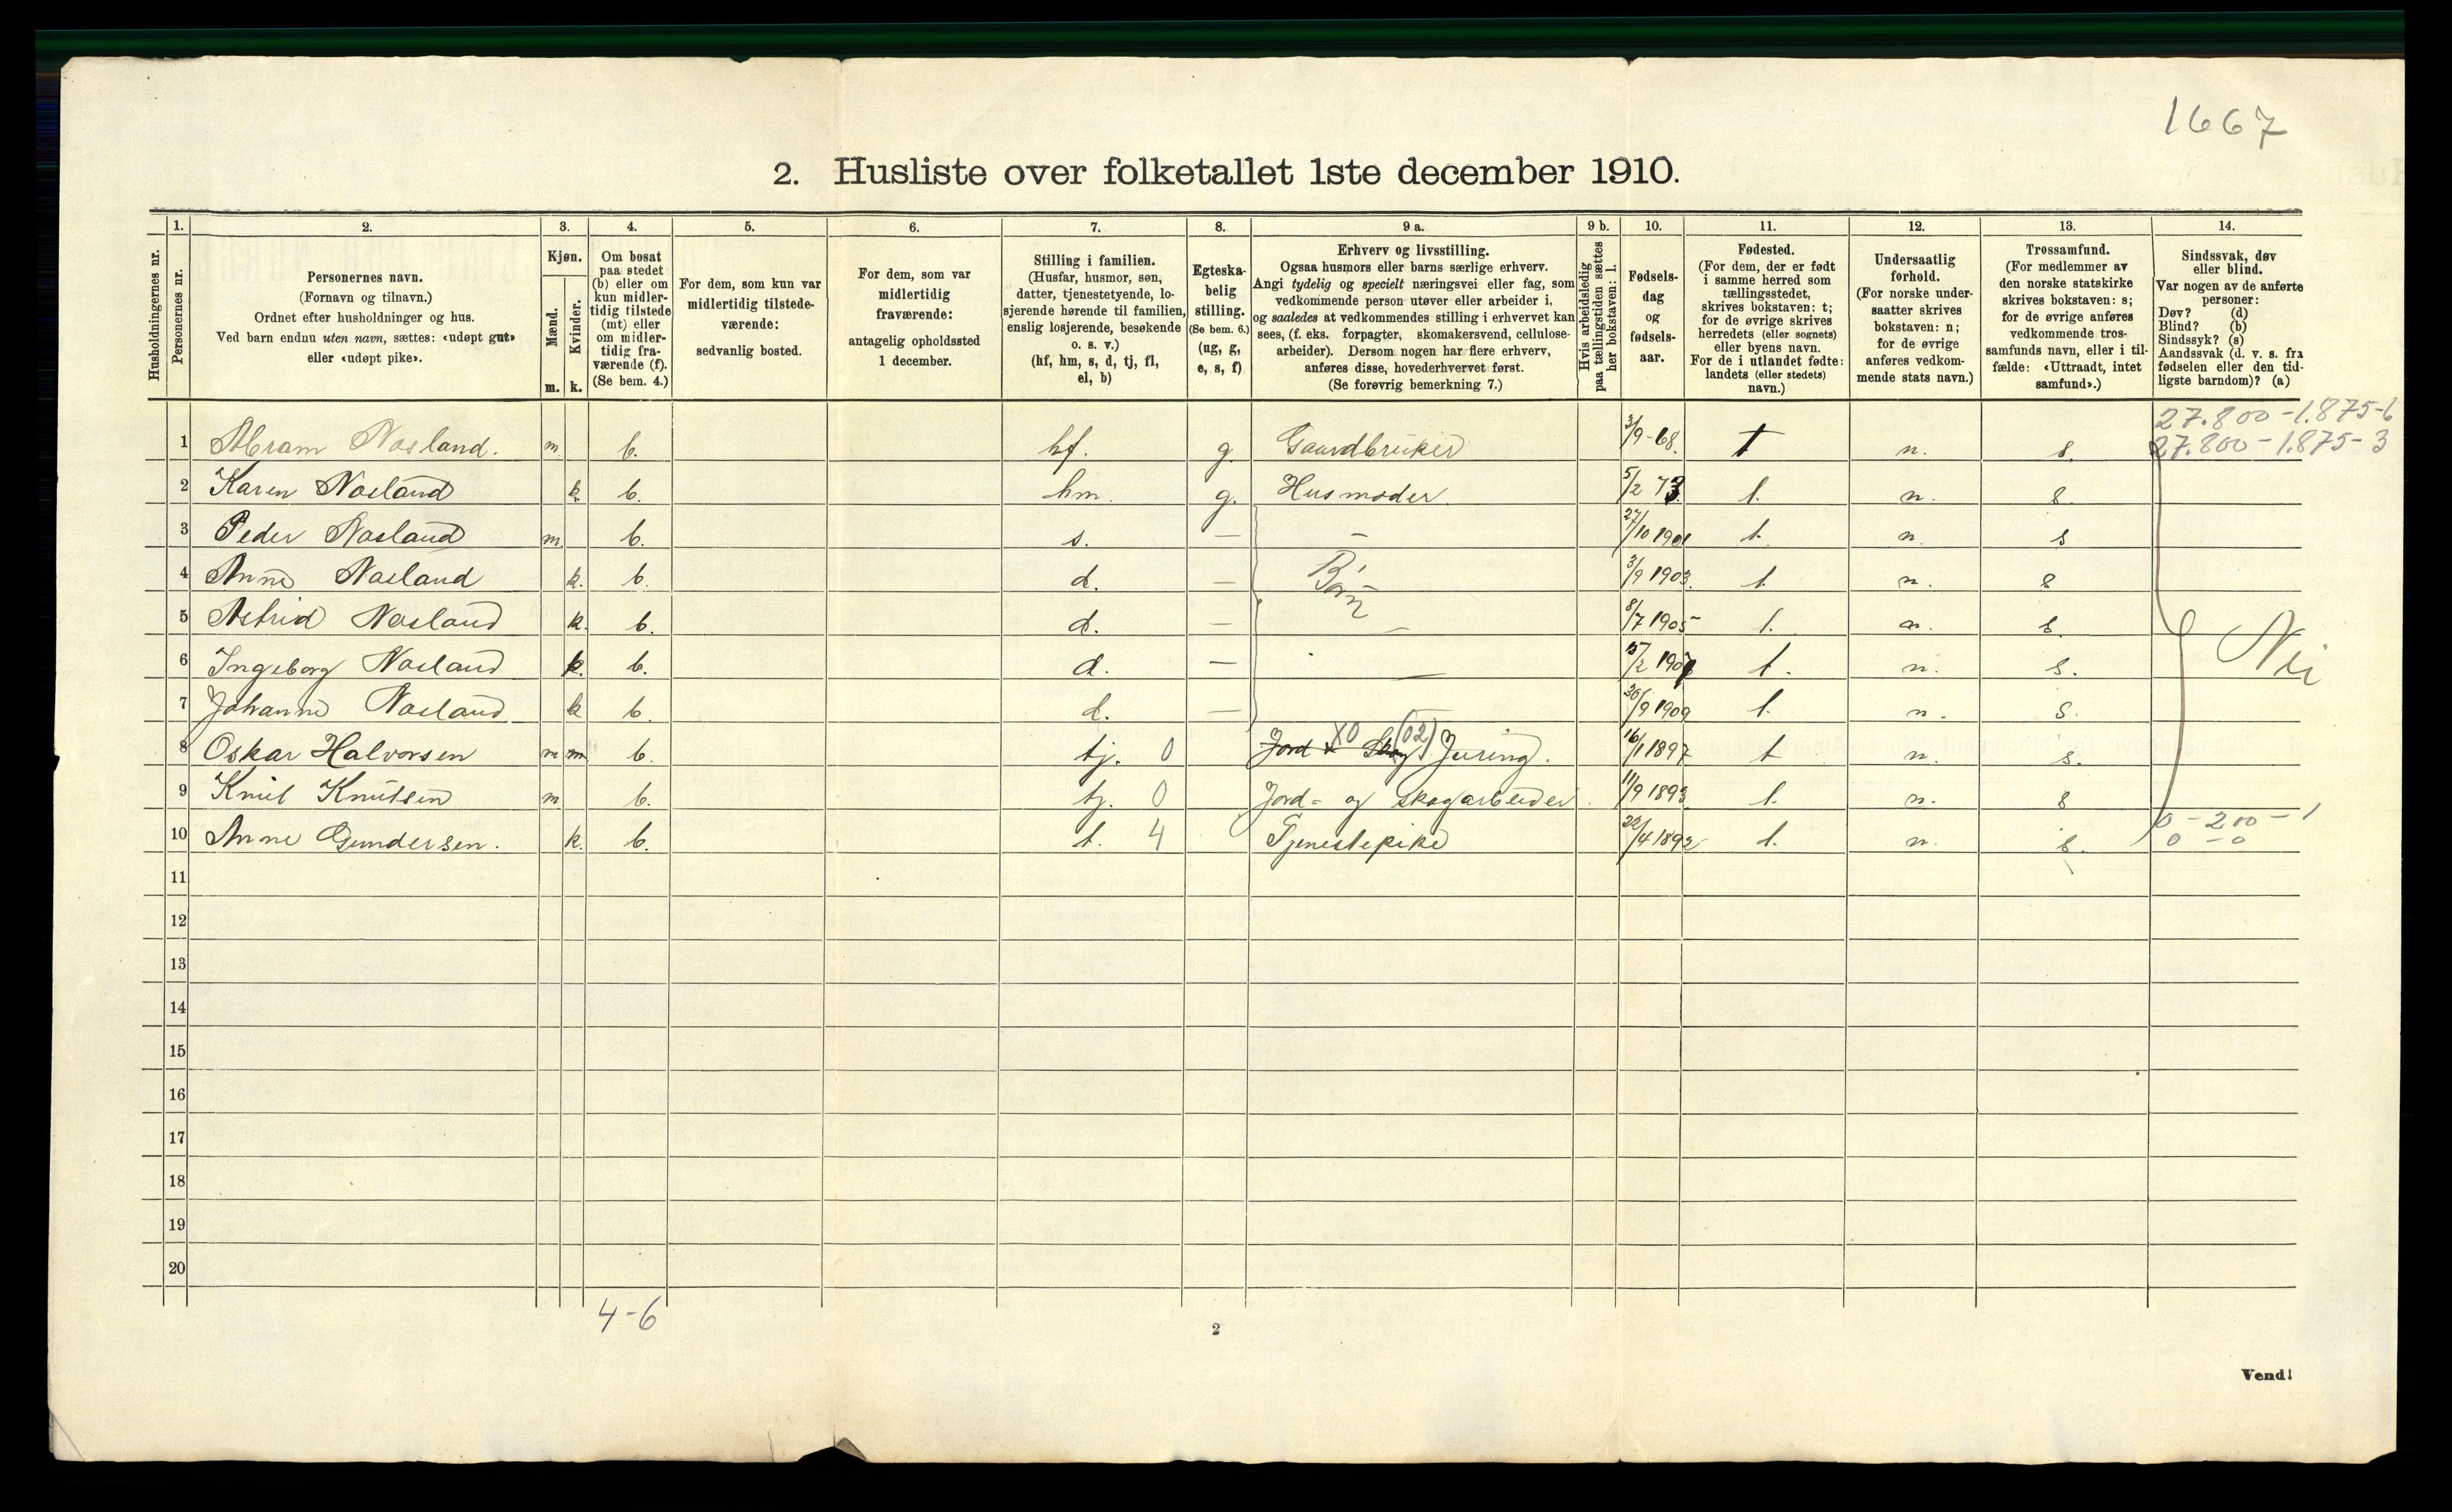 1667
2. Husliste over folketallet 1ste december 1910.
Husholdningernes nr.
1.
Personernes nr.
2.
Personernes navn.
(Fornavn og tilnavn.)
Ordnet efter husholdninger og hus.
Ved barn endnu uten navn, sættes: «udøpt gut»
eller «udøpt pike».
3.
Kjøn.
Mænd.
m.
Kvinder.
k.
4.
Om bosat
paa stedet
(b) eller om
kun midler-
tidig tilstede
(mt) eller
om midler-
tidig fra-
værende (f).
(Se bem. 4.)
5.
For dem, som kun var
midlertidig tilstede-
værende:
sedvanlig bosted.
6.
For dem, som var
midlertidig
fraværende:
antagelig opholdssted
1 december.
7.
Stilling i familien.
(Husfar, husmor, søn,
datter, tjenestetyende, lo-
sjerende hørende til familien,
enslig losjerende, besøkende
o. s. v.)
(hf, hm, s, d, tj, fl,
el, b)
8.
Egteska-
belig
stilling.
(Se bem. 6.)
(ug, g,
e, s, f)
9 a.
Erhverv og livsstilling.
Ogsaa husmors eller barns særlige erhverv.
Angi tydelig og specielt næringsvei eller fag, som
vedkommende person utøver eller arbeider i,
og saaledes at vedkommendes stilling i erhvervet kan
sees, (f. eks. forpagter, skomakersvend, cellulose-
arbeider). Dersom nogen har flere erhverv,
anføres disse, hovederhvervet først.
(Se forøvrig bemerkning 7.)
9 b.
Hvis arbeidsledig
paa tællingstiden sættes
her bokstaven: l.
10.
Fødsels-
dag
og
fødsels-
aar.
11.
Fødested.
(For dem, der er født
i samme herred som
tællingsstedet,
skrives bokstaven: t;
for de øvrige skrives
herredets (eller sognets)
eller byens navn.
For de i utlandet fødte:
landets (eller stedets)
navn.)
12.
Undersaatlig
forhold.
(For norske under-
saatter skrives
bokstaven: n;
for de øvrige
anføres vedkom-
mende stats navn.)
13.
Trossamfund.
(For medlemmer av
den norske statskirke
skrives bokstaven: s;
for de øvrige anføres
vedkommende tros-
samfunds navn, eller i til-
fælde: «Uttraadt, intet
samfund».)
14.
Sindssvak, døv
eller blind.
Var nogen av de anførte
personer:
Døv? (d)
Blind? (b)
Sindssyk? (s)
Aandssvak (d. v. s. fra
fødselen eller den tid-
ligste barndom)? (a)
27.800 - 1.875-6
1 Abram Nasland. m b. hf. g. Gaardbruker 3/9-68. t n. s. 27.800 - 1.875-3
2 Karen Nasland k b. hm. g. Husmoder 5/2 73 t. n. s.
3 Peder Nasland m. b. s. — — 27/10 1901 t. n. s
4 Anne Nasland k. b. d. — Børn 3/9 1903. t. n. s
5 Astrid Nasland k. b. d. — — 8/7 1905 t. n. s. Nei
6 Ingeborg Nasland k. b. d. — — 15/2 1907 t. n. s.
7 Johanne Nasland k b. d. — 30/9 1909 t. n. s.
X0 (02)
8 Oskar Halvorsen m m b. tj. 0 Jord & Skog Juring. 16/1 1897 t n. s.
9 Knut Knutsen m. b. tj. 0 Jord- og skogarbeider. 11/9 1893 t. n. s
0 - 200 - 1
10 Anne Gundersen. k. b. t. 4 Tjenestepike 22/4 1892 t. n. s. 0 - 0
11
12
13
14
15
16
17
18
19
20
4-6
2
Vend!